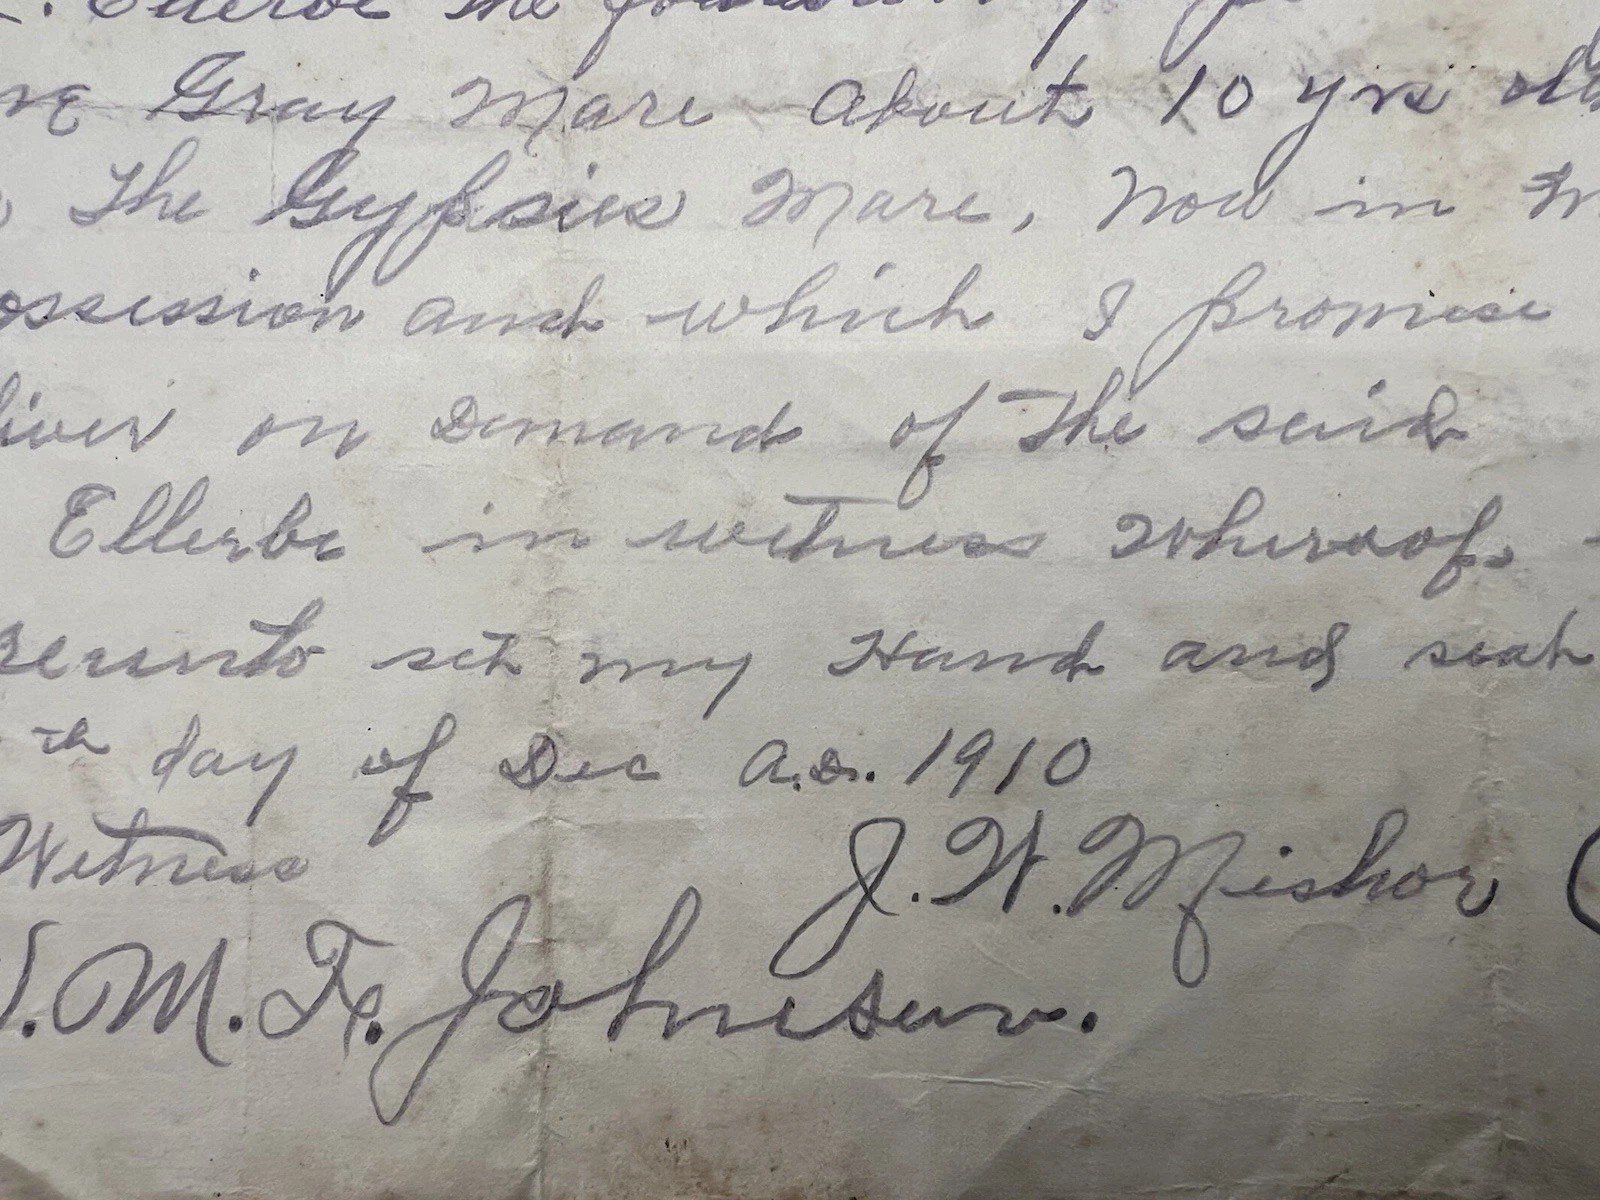 Ellerbe the following
Gray Mare about 10 yrs old
The Gypsies Mare, Now in
ossession and which I promise
liver on Demand of The said
Ellerbe in witness Whereof.
reunto set my Hand and seal
th day of Dec A.D. 1910
Witness
J. W. Mishow (
. M. F. Johnson.